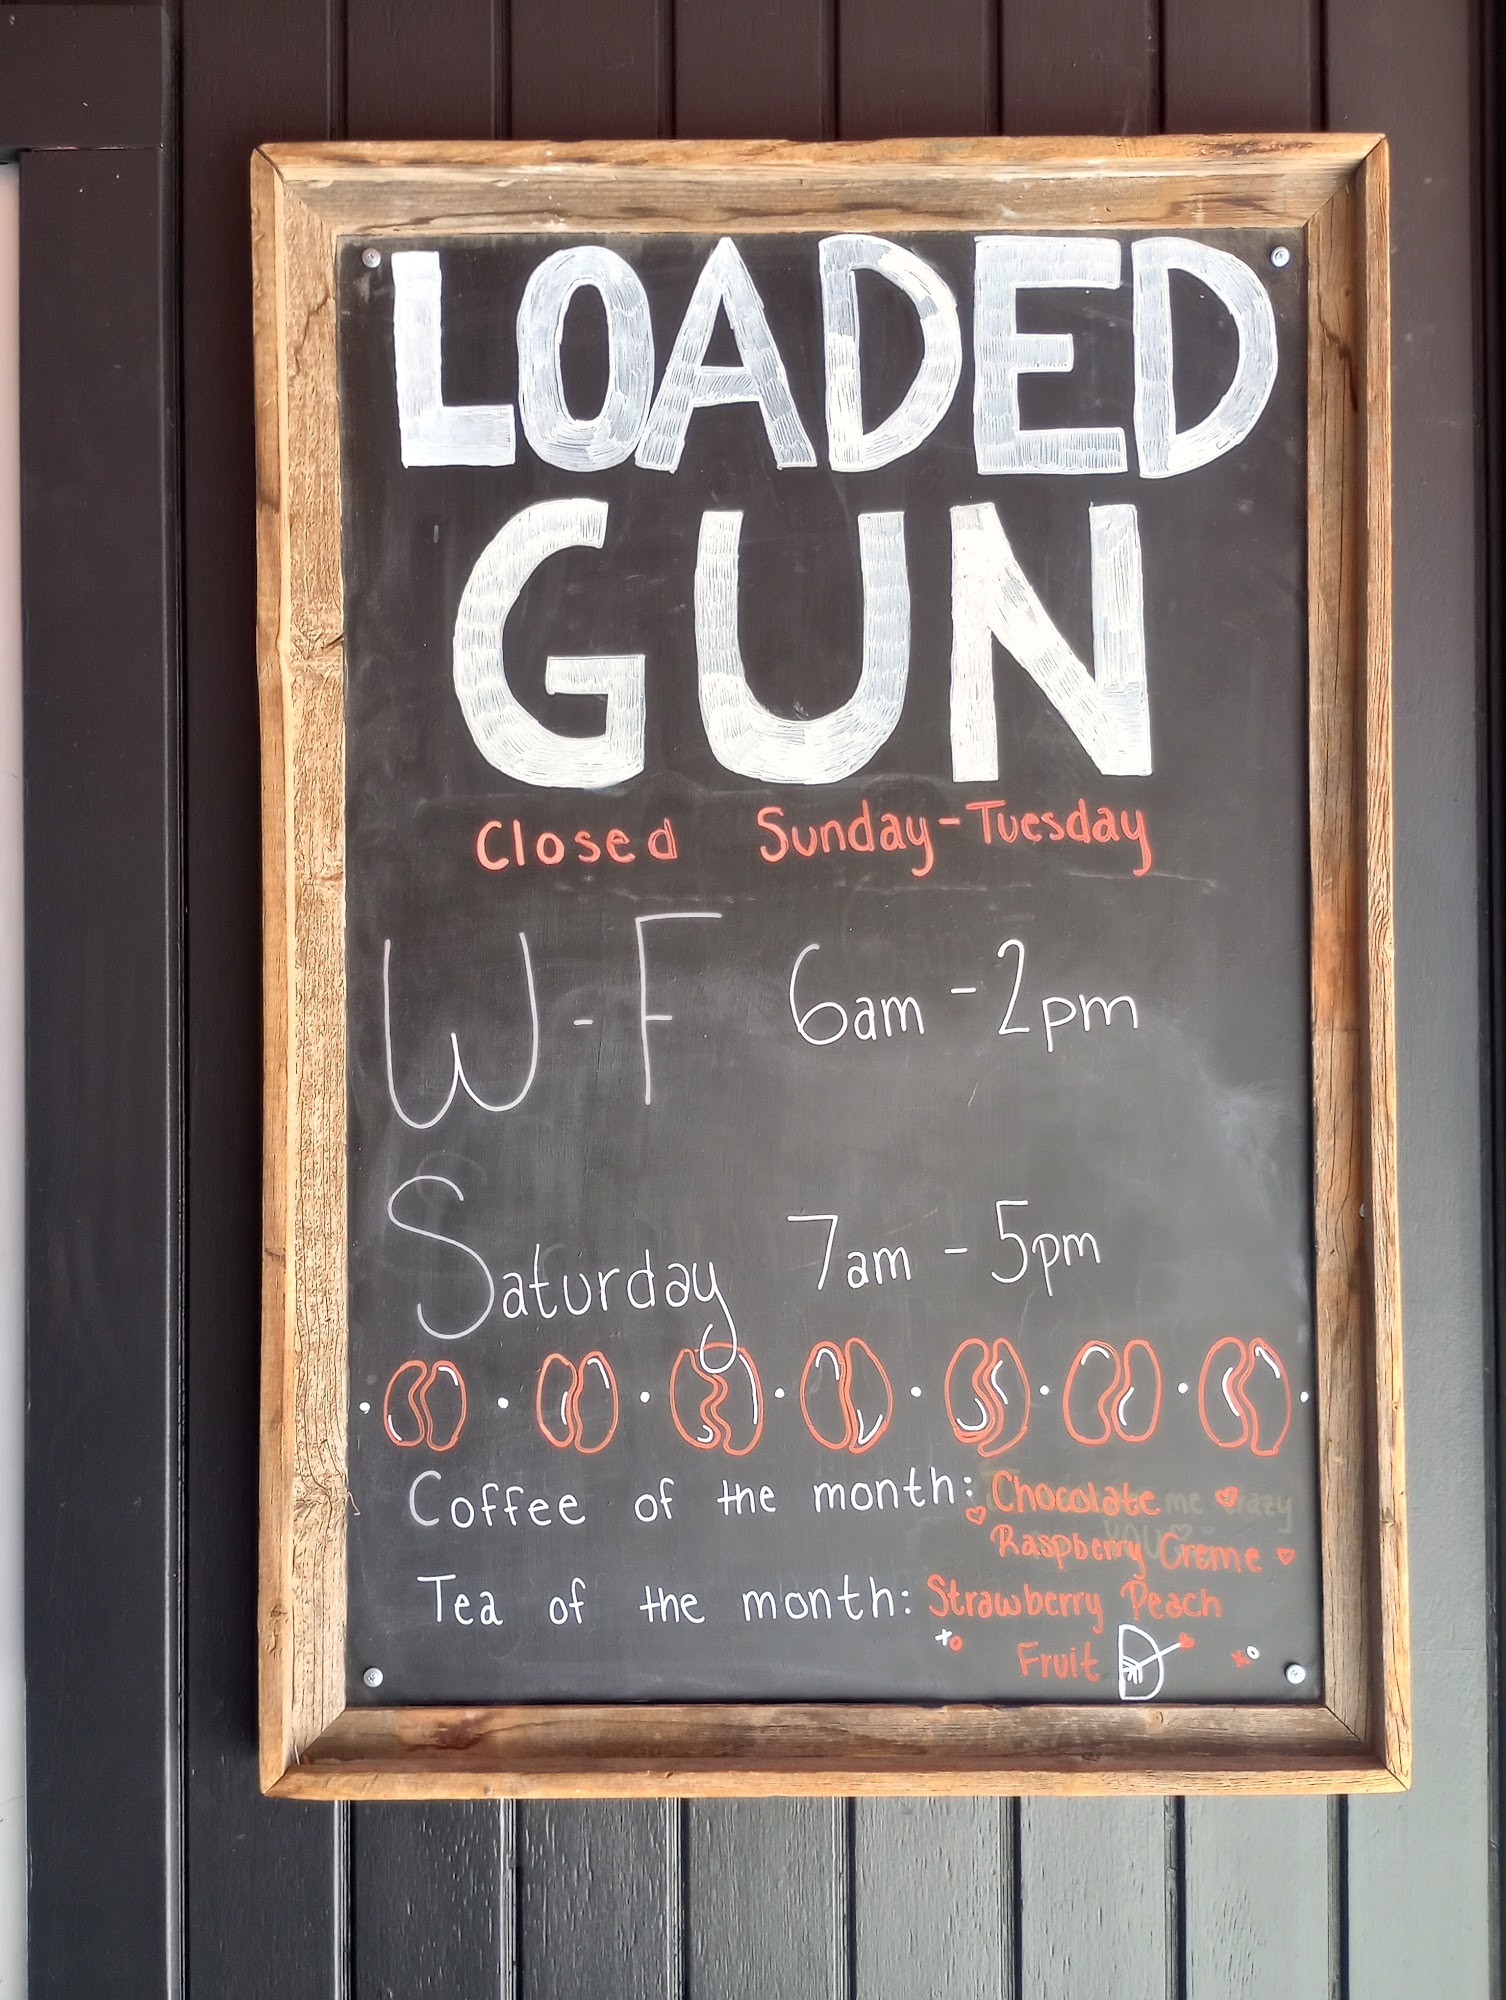 LOADED
GUN
Closed Sunday-Tuesday
W-F 6am-2pm
Saturday 7am-5pm
Coffee of the month: Chocolate
Raspberry Creme
Tea of the month: Strawberry Peach
Fruit